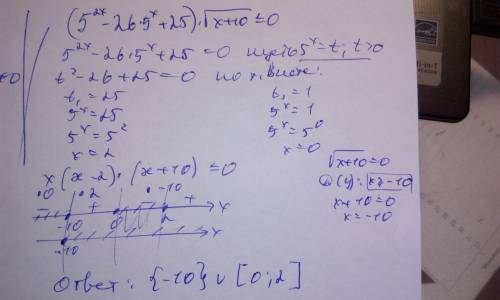 (5^2x - 26·5^x + 25)·√x+10 ≤ 0
5^2x - 26·5^x + 25 = 0 пусть 5^x = t, t > 0
t² - 26 + 25 = 0 по т. Виета:
t₁ = 25 t₁ = 1
5^x = 25 5^x = 1
5^x = 5² 5^x = 5^0
x = 2 x = 0
√x+10 = 0
x (x-2)·(x+10) ≤ 0
x ≥ -10
x + 10 = 0
x = -10
·0 ·2 ·-10
+ +
-10 0 2 x
-10 x
Ответ: {-10} ∪ [0; 2]